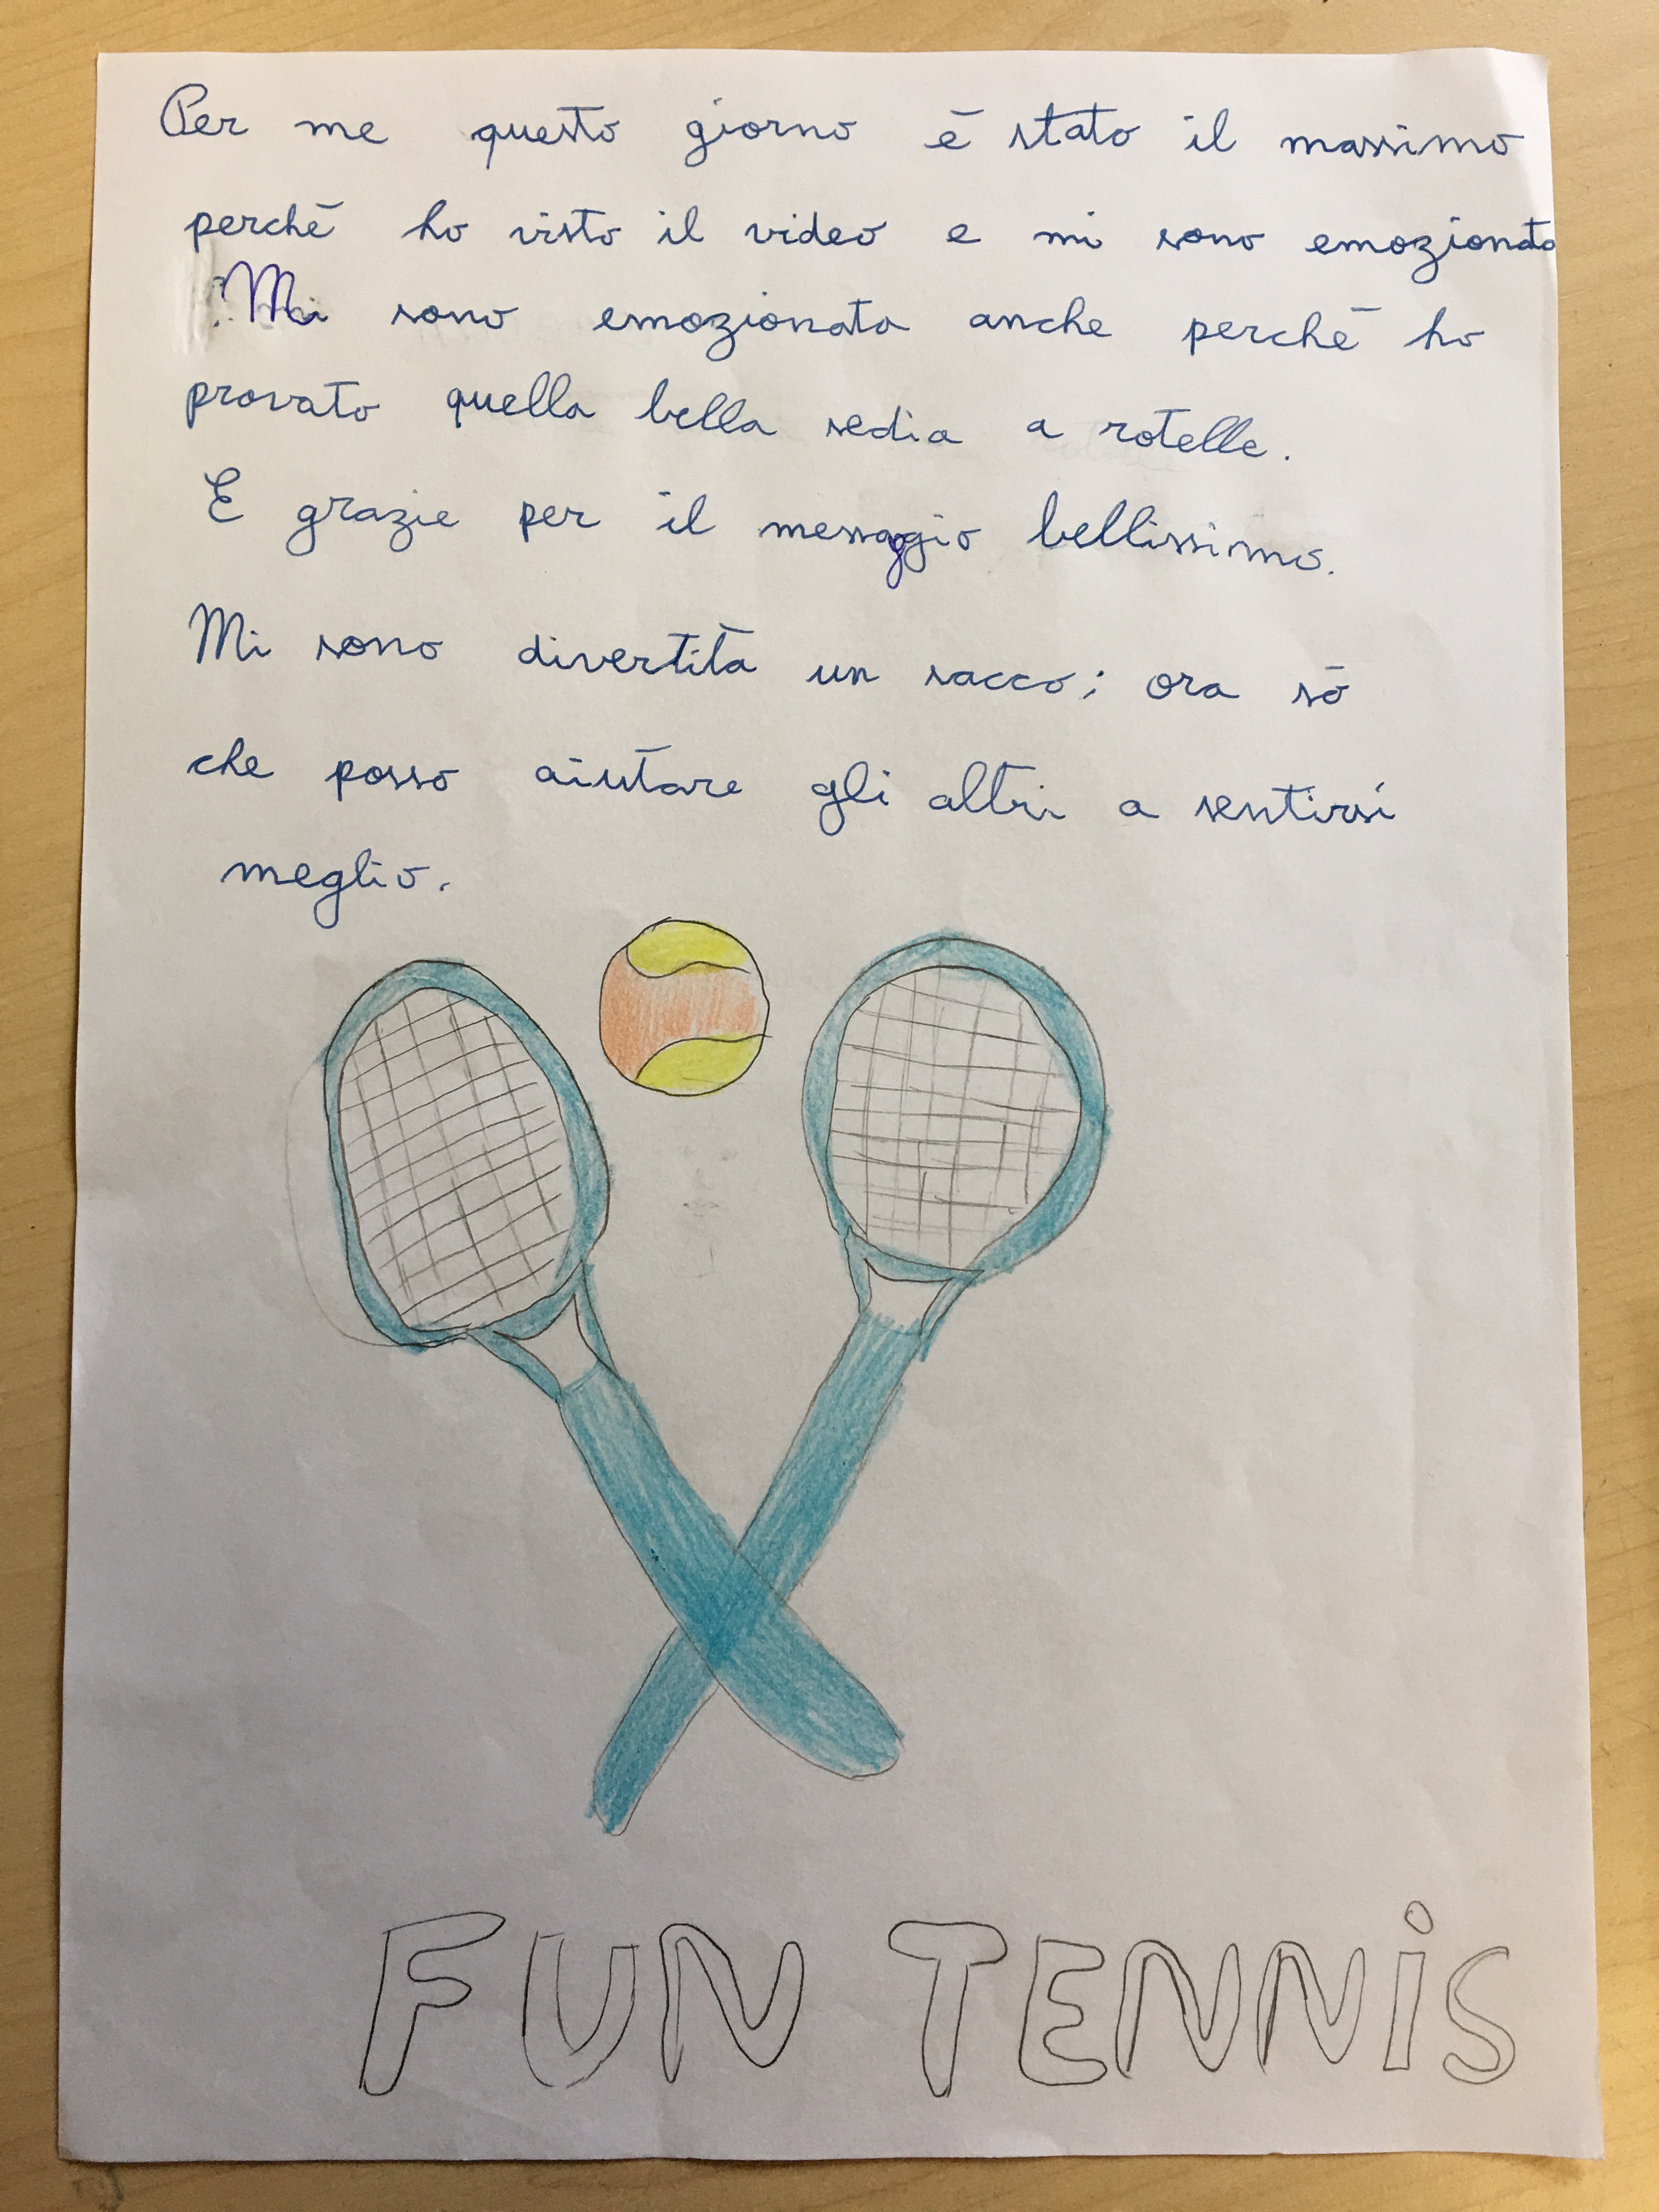 Per me questo giorno è stato il massimo
perchè ho visto il video e mi sono emozionata
Mi sono emozionata anche perchè ho
provato quella bella sedia a rotelle.
E grazie per il messaggio bellissimo.
Mi sono divertita un sacco; ora sò
che posso aiutare gli altri a sentirsi
meglio.
FUN TENNiS